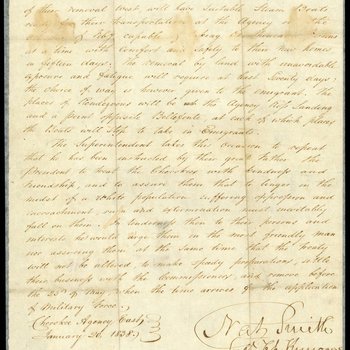 of their removal West will have Suitable Steam Boats
ready for their transportation at the Agency on the
of Feby capable of
at a time with Comfort and safety to their new homes
in fifteen days. The removal by land with unavoidable
exposure and fatigue will require at least Seventy days;
the choice of ways is however given to the emigrant. The
places of Rendezvous will be at the Agency Ross Landing
and a point opposite Bellefonte at each of which places
the Boats will stop to take in Emigrants.
The Superintendent takes this Occasion to repeat
that he has been instructed by their great Father the
president to treat the Cherokees with kindness and
friendship, and to assure them that to linger in the
midst of a White population suffering oppression and
encroachment ruin and extermination must inevitably
fall on them. In tenderness then to their persons and
interests he would urge them in the most friendly man
ner assuring them at the same time that the treaty
will not be altered, to make speedy preparations, settle
their business with the Commissioners and remove before
the 23d of May when the time arrives for the application
of Military force.
Cherokee Agency East
January 26 1838.
Nat Smith